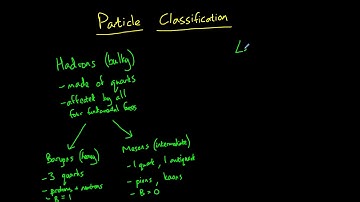 Particle Classification
Hadrons (bulky)
- made of quarks
- affected by all
four fundamental forces
Baryons (heavy)
- 3 quarks
- protons + neutrons
- B = 1
Mesons (intermediate)
- 1 quark, 1 antiquark
- pions, kaons
- B = 0
L